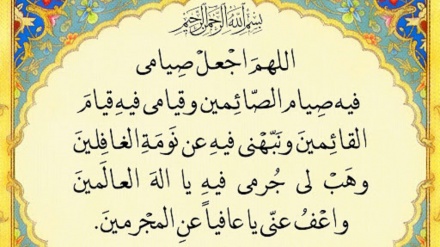 بسم الله الرحمن الرحيم
اللهمَ اجْعلْ صِيامى
فيه صِيام الصّائِمين وقِيامى فيهِ قيامَ
القائِمينَ ونَبّهْنى فيهِ عن نَومَةِ الغافِلينَ
وهَبْ لى جُرمى فيهِ يا الهَ العالَمينَ
واعْفُ عنّى يا عافياً عنِ المجْرمينَ.